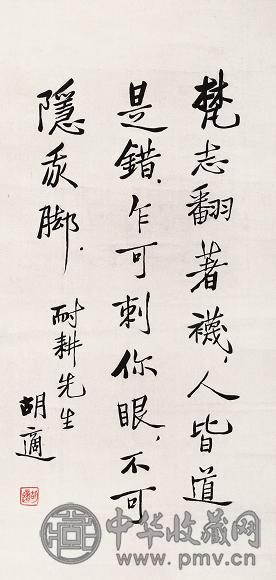 梵志翻著襪，人皆道
是錯．乍可刺你眼，不可
隱我脚．
耐耕先生
胡適
中华收藏网
www.pmv.cn